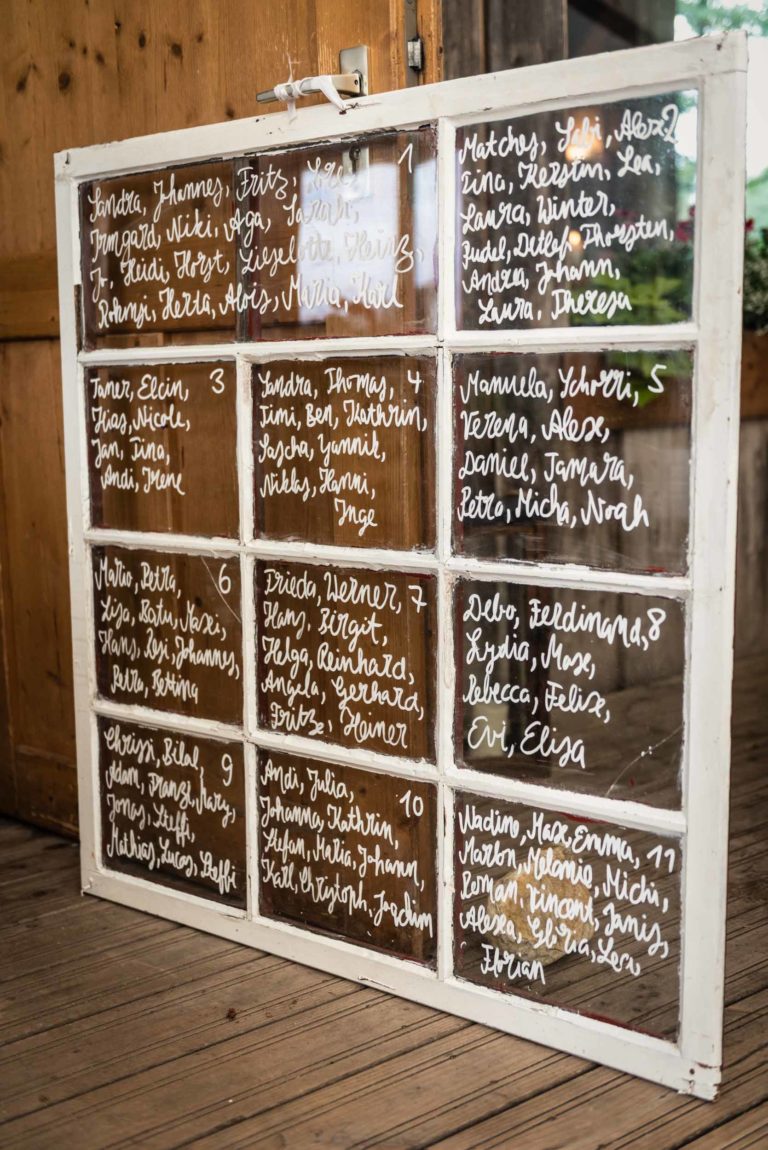 Sandra, Johannes, Fritz, 1
Irmgard, Niki, Aga, Sarah,
Jo, Heidi, Horst, Lieselotte, Heinz,
Herta, Alois, Maria, Karl
Matches, Alex 2
Tina, Kerstin, Lea,
Laura, Winter,
Pudel, Detlep, Thorsten,
Andrea, Johann,
Laura, Theresa
Taner, Elcin, 3
Hias, Nicole,
Jan, Tina,
Andi, Irene
Sandra, Thomas, 4
Timi, Ben, Kathrin,
Sascha, Yannik,
Niklas, Hanni,
Inge
Manuela, Schorri, 5
Verena, Alex,
Daniel, Tamara,
Petra, Micha, Noah
Mario, Petra, 6
Lisa, Maxi,
Hans, Rosi, Johannes,
Petra, Bettina
Frieda, Werner, 7
Hans, Birgit,
Helga, Reinhard,
Angela, Gerhard,
Fritz, Heiner
Debo, Ferdinand, 8
Lydia, Max,
Rebecca, Felix,
Evi, Elisa
Chrissi, Bilal, 9
Adam, Franzi, Mary,
Jonas, Steffi,
Mathias, Lucas, Steffi
Andi, Julia, 10
Johanna, Kathrin,
Stefan, Maria, Johann,
Karl, Christoph, Joachim
Nadine, Max, Emma, 11
Marlon, Melanie, Michi,
Roman, Vincent, Janis,
Alexa, Gloria, Lexi
Florian